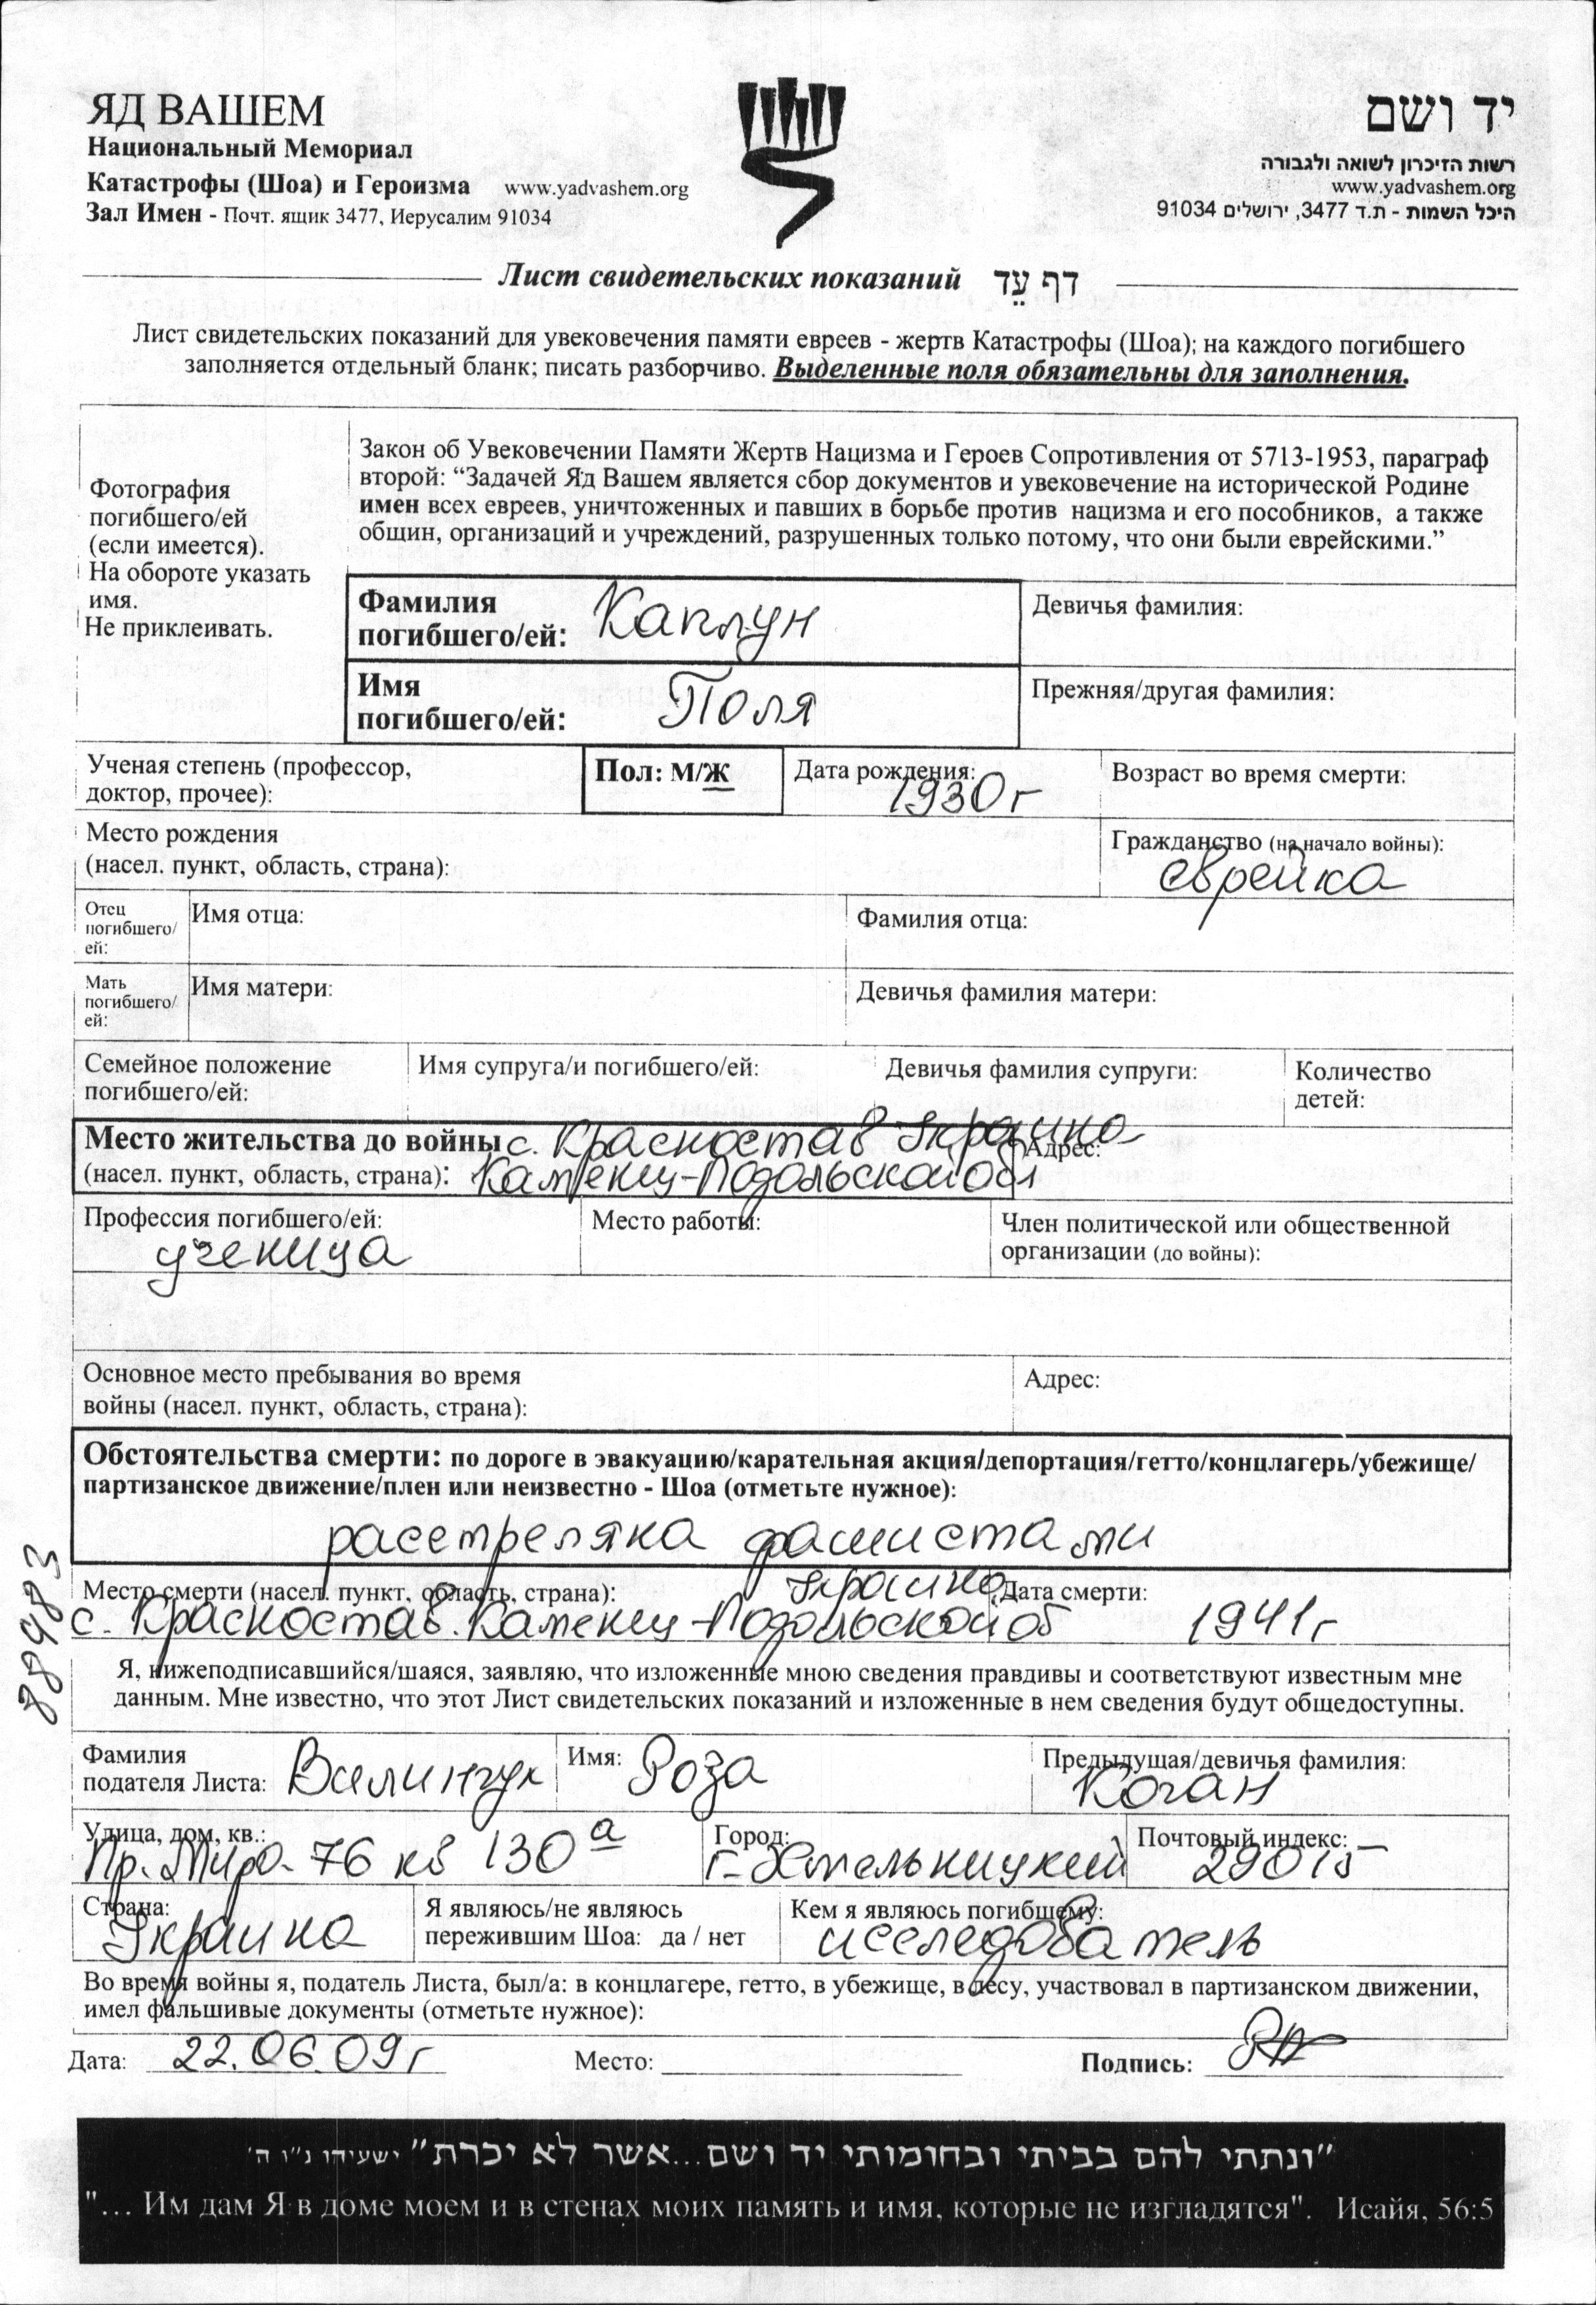 ЯД ВАШЕМ
Национальный Мемориал
Катастрофы (Шоа) и Героизма www.yadvashem.org
Зал Имен - Почт. ящик 3477, Иерусалим 91034
יד ושם
רשות הזיכרון לשואה ולגבורה
www.yadvashem.org
היכל השמות - ת.ד 3477, ירושלים 91034
Лист свидетельских показаний דף עֵד
Лист свидетельских показаний для увековечения памяти евреев - жертв Катастрофы (Шоа); на каждого погибшего
заполняется отдельный бланк; писать разборчиво. Выделенные поля обязательны для заполнения.
Фотография
погибшего/ей
(если имеется).
На обороте указать
имя.
Не приклеивать.
Закон об Увековечении Памяти Жертв Нацизма и Героев Сопротивления от 5713-1953, параграф
второй: “Задачей Яд Вашем является сбор документов и увековечение на исторической Родине
имен всех евреев, уничтоженных и павших в борьбе против нацизма и его пособников, а также
общин, организаций и учреждений, разрушенных только потому, что они были еврейскими.”
Фамилия
погибшего/ей: Каплун
Девичья фамилия:
Имя
погибшего/ей: Поля
Прежняя/другая фамилия:
Ученая степень (профессор,
доктор, прочее):
Пол: М/Ж
Дата рождения:
1930 г
Возраст во время смерти:
Место рождения
(насел. пункт, область, страна):
Гражданство (на начало войны):
еврейка
Отец
погибшего/
ей:
Имя отца:
Фамилия отца:
Мать
погибшего/
ей:
Имя матери:
Девичья фамилия матери:
Семейное положение
погибшего/ей:
Имя супруга/и погибшего/ей:
Девичья фамилия супруги:
Количество
детей:
Место жительства до войны с. Красностав Украина
(насел. пункт, область, страна): Каменец-Подольской обл
Адрес:
Профессия погибшего/ей:
ученица
Место работы:
Член политической или общественной
организации (до войны):
Основное место пребывания во время
войны (насел. пункт, область, страна):
Адрес:
Обстоятельства смерти: по дороге в эвакуацию/карательная акция/депортация/гетто/концлагерь/убежище/
партизанское движение/плен или неизвестно - Шоа (отметьте нужное):
расстреляна фашистами
Место смерти (насел. пункт, область, страна): Украина
с. Красностав. Каменец-Подольской об
Дата смерти:
1941 г
88983
Я, нижеподписавшийся/шаяся, заявляю, что изложенные мною сведения правдивы и соответствуют известным мне
данным. Мне известно, что этот Лист свидетельских показаний и изложенные в нем сведения будут общедоступны.
Фамилия
подателя Листа: Вилинчук
Имя: Роза
Предыдущая/девичья фамилия:
Коган
Улица, дом, кв.:
Пр. Мира 76 кв 130 а
Город:
г. Хмельницкий
Почтовый индекс:
29015
Страна:
Украина
Я являюсь/не являюсь
пережившим Шоа: да / нет
Кем я являюсь погибшему:
исследователь
Во время войны я, податель Листа, был/а: в концлагере, гетто, в убежище, в лесу, участвовал в партизанском движении,
имел фальшивые документы (отметьте нужное):
Дата: 22.06.09 г
Место:
Подпись:
"ונתתי להם בביתי ובחומותי יד ושם...אשר לא יכרת" ישעיהו נ"ו ה'
"... Им дам Я в доме моем и в стенах моих память и имя, которые не изгладятся". Исайя, 56:5